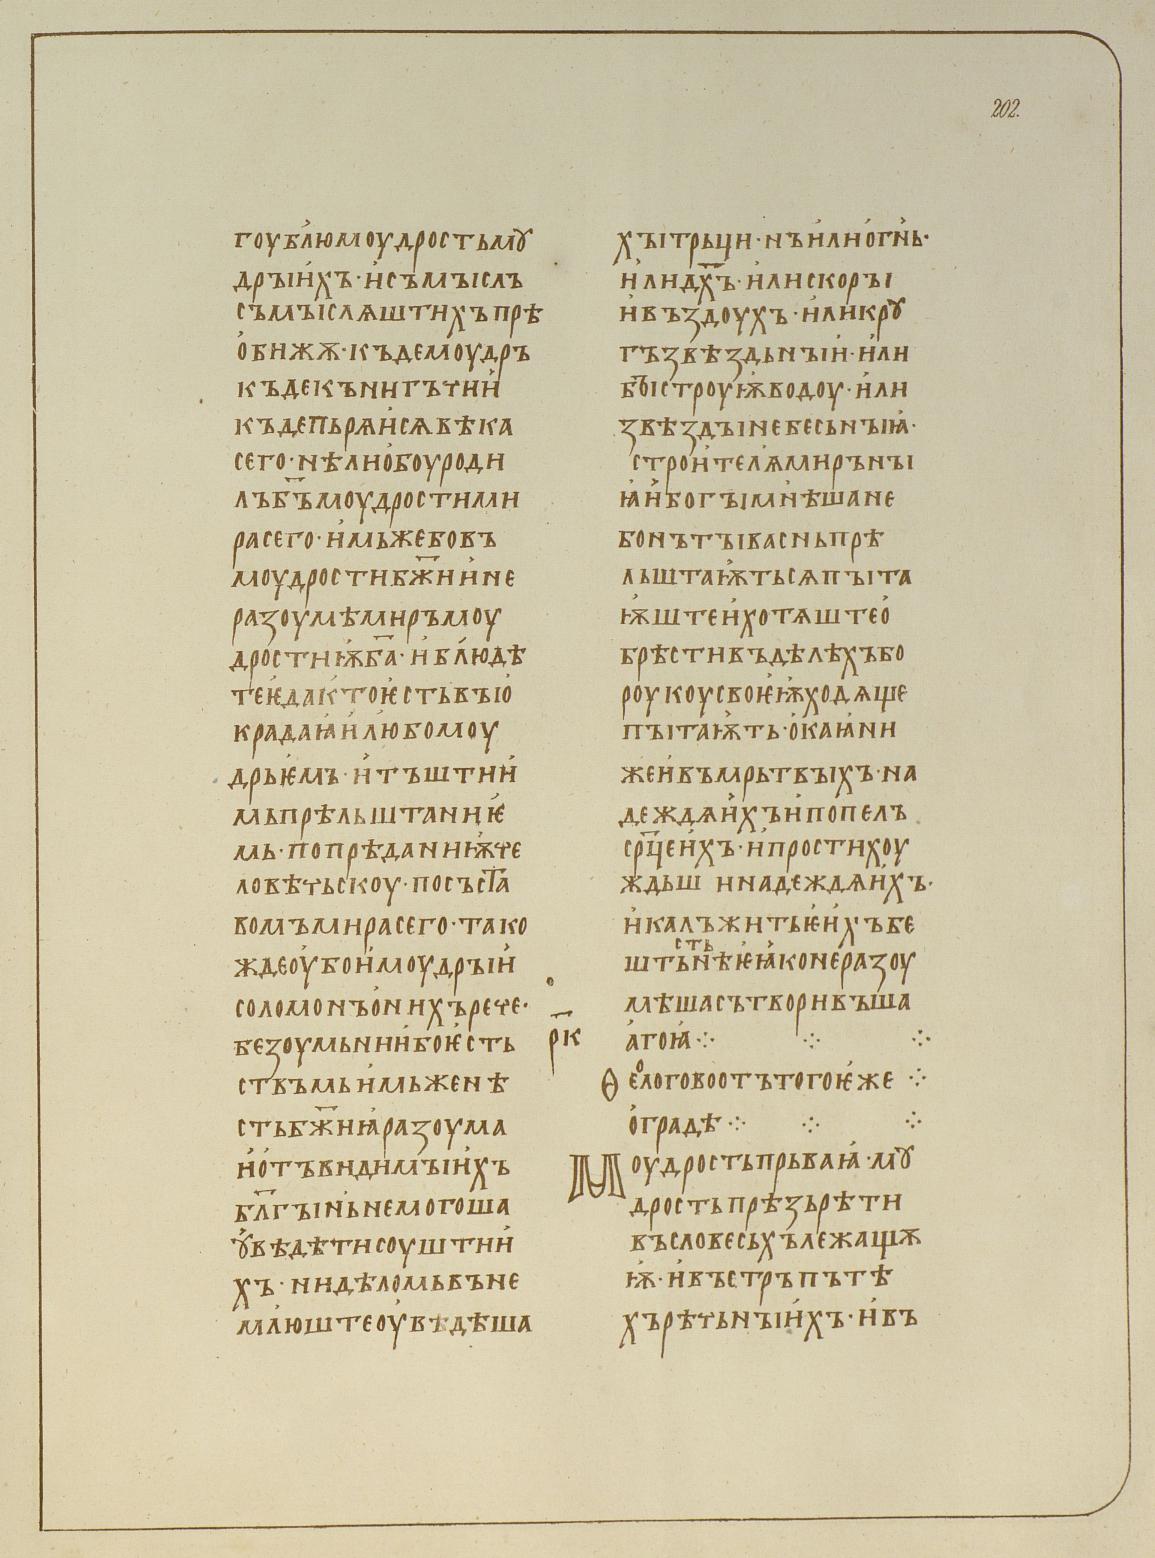 202.
гоубл҄юмоудростьмꙋ
дрꙑи҅хъ·и҅съмꙑслъ
съмꙑслѧштихъпрѣ
о҅бижѫ·къдемоудръ
къдекънигъчии҅
къдепьрѧи҅сѧвѣка
сего·нѣлио҅боуроди
лъб҃ъмоудростими
расего·и҅мьжебовъ
моудростиб҃жии҅не
разоумѣмиръмоу
дростиѭб҃а·и҅бл҄юдѣ
теѥ҅дак҄тоѥ҅стьвꙑо҅
крадаꙗ҅и҅л҄юбомоу
дрьѥ҅мь·и҅тъштии҅
мьпрѣльштаниѥ҅
мь·попрѣданиѭ҅че
ловѣчьскоу·посъста
вомъмирасего·тако
ждеоу҅бои҅моудрꙑи҅
соломонъо҅нихърече·
безоумьнии҅боѥ҅сть
ствъмьи҅мьженѣ
стьб҃жиꙗ҅разоума
и҅о҅тъвидимꙑи҅хъ
бл҃гꙑин҄ьнемогоша
ꙋ҅вѣдѣтисоуштии҅
хъ·нидѣломьвъне
мл҄юштеоу҅вѣдѣша
хꙑтрьци·нъи҅лио҅гн҄ь·
и҅лид҃хъ·и҅лискорꙑ
и҅въздоухъ·и҅ликрꙋ
гъзвѣздьнꙑи҅·и҅ли
бꙑстроуѭ҅водоу·и҅ли
звѣздꙑнебесьнꙑꙗ҅·
строи҅тел҄ѧмирънꙑ
ꙗ҅и҅богꙑмн҄ѣшане
бонътꙑвасньпрѣ
льштаѭ҅тьсѧпꙑта
ѭштеи҅хотѧштео҅
брѣстивъдѣлѣхъбо
роукоусвоѥ҅ѭ҅ходѧще
пꙑтаѭ҅ть·о҅каꙗ҅ни
жеи҅въмрьтвꙑхъ·на
деждѧи҅хъи҅попелъ
ср҃цеи҅хъ·и҅простихоу
ждьш инадеждѧи҅хъ·
и҅калъжитьѥ҅и҅хъбе
сть
штьн҄ѣѥ҅ꙗ҅конеразоу
мѣшасътворивъша
рк а҅гоꙗ҅⁘ ⁘ ⁘
Ѳео҅логовоотътогоѥ҅же ⁘
о҅градѣ⁘ ⁘ ⁘
Моудростьпрьваꙗ҅·мꙋ
дростьпрѣзьрѣти
въсловесьхълежащѫ
ѭ҅·и҅въстръпътѣ
хърѣчьнꙑи҅хъ·и҅въ